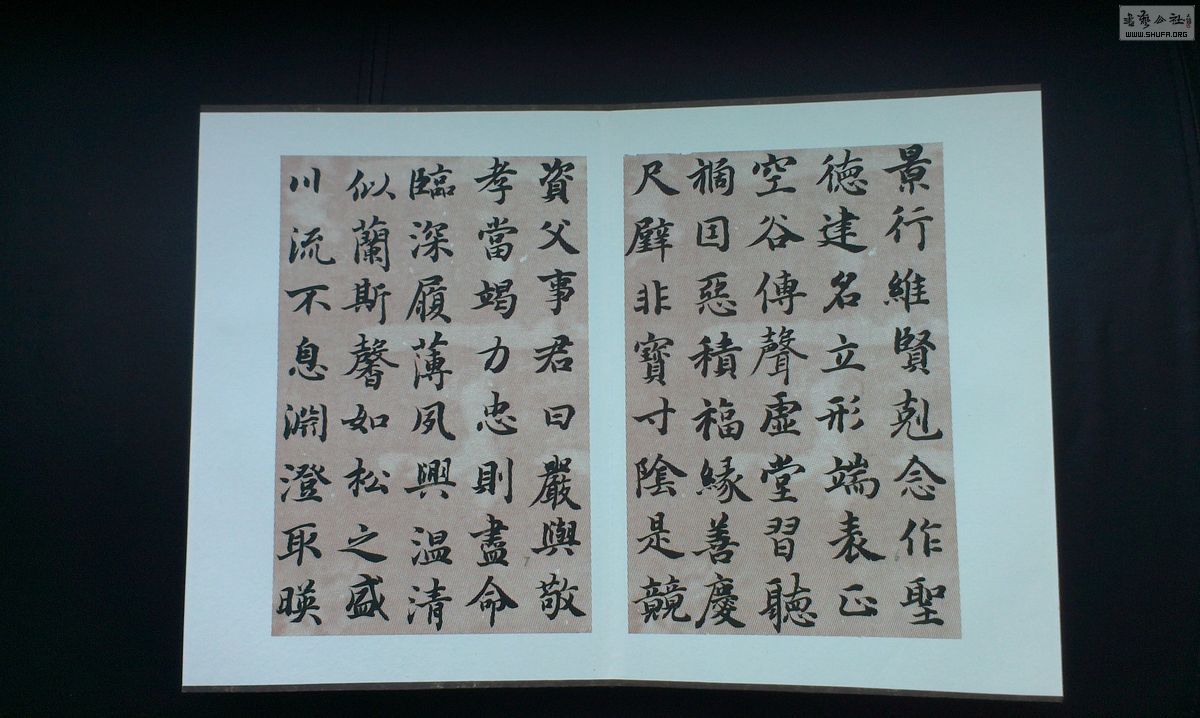 景行維賢剋念作聖
徳建名立形端表正
空谷傳聲虛堂習聽
禍因惡積福緣善慶
尺璧非寶寸陰是競
資父事君曰嚴與敬
孝當竭力忠則盡命
臨深履薄夙興温清
似蘭斯馨如松之盛
川流不息淵澄取暎
书艺公社
WWW.SHUFA.ORG